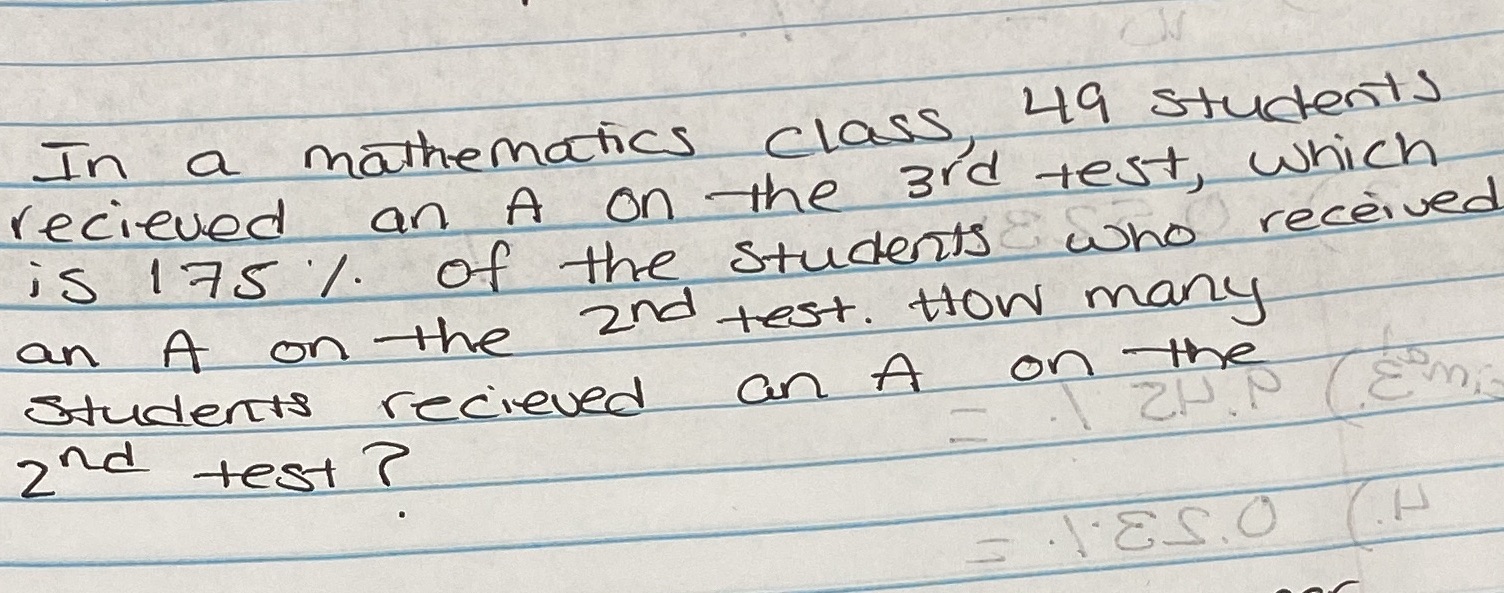 In a mathematics class, 49 students
recieved an A on the 3rd test, which
is 175 %. of the students who received
an A on the 2nd test. How many
students recieved an A on the
2nd test?